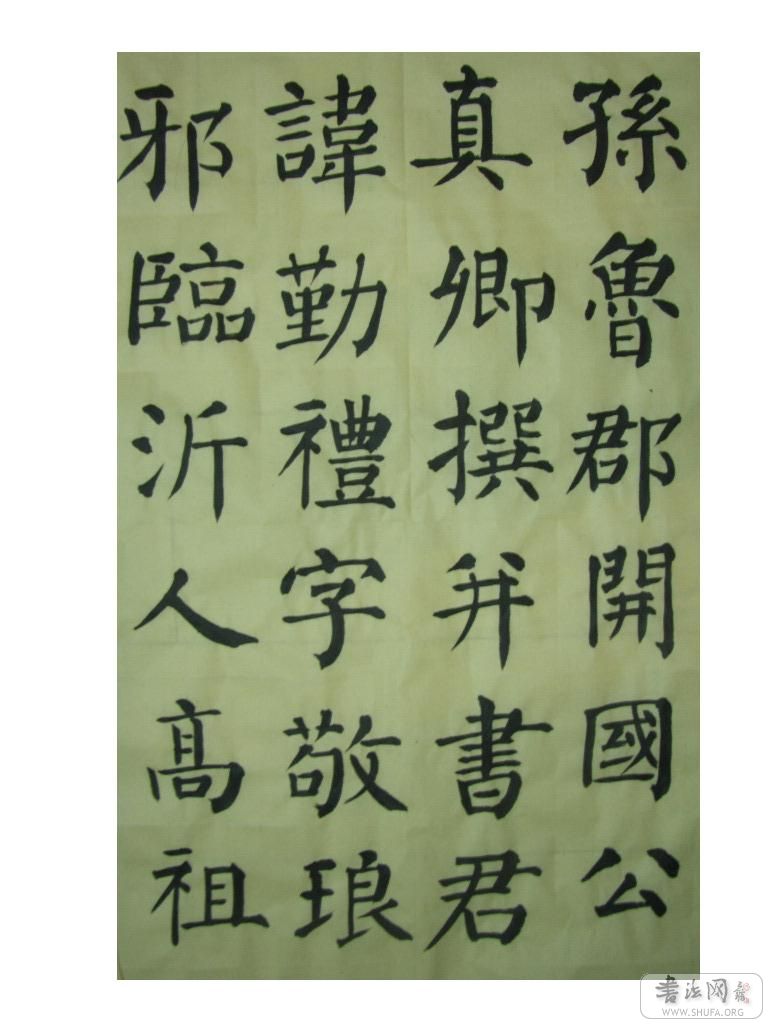 孫魯郡開國公
真卿撰并書君
諱勤禮字敬琅
邪臨沂人高祖
書法网
WWW.SHUFA.ORG